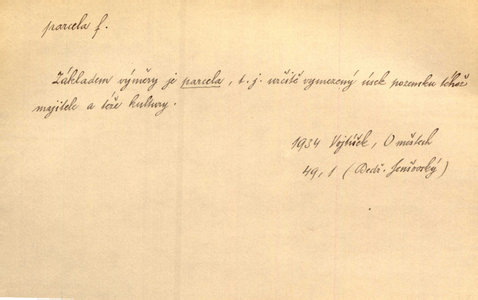 parcela f.
Základem výměry je parcela, t. j. určitě vymezený úsek pozemku téhož
majitele a téže kultury.
1934 Vojtíšek, O městech
49, 1 (Bedř. Jenšovský)